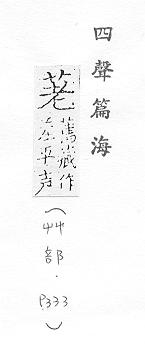 四聲篇海
荖
舊藏作
老平声
(艸部.P333)